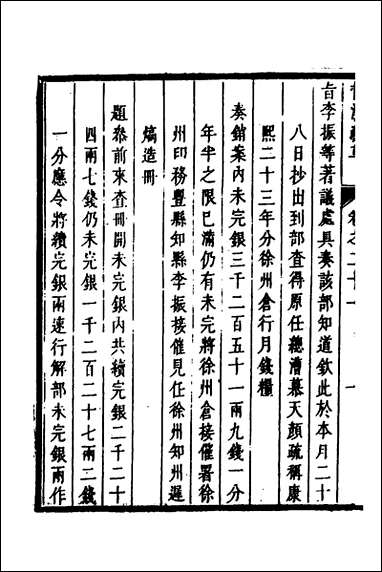 旨李振等著議處具奏該部知道欽此於本月二十
八日抄出到部查得原任總漕慕天顏疏稱康
熙二十三年分徐州倉行月錢糧
奏銷案內未完銀三千二百五十一兩九錢一分
年半之限已滿仍有未完將徐州倉接催署徐
州印務豐縣知縣李振接催見任徐州知州遲
煓造冊
題叅前來查冊開未完銀內共續完銀二千二十
四兩七錢仍未完銀一千二百二十七兩二錢
一分應令將續完銀兩速行解部未完銀兩作